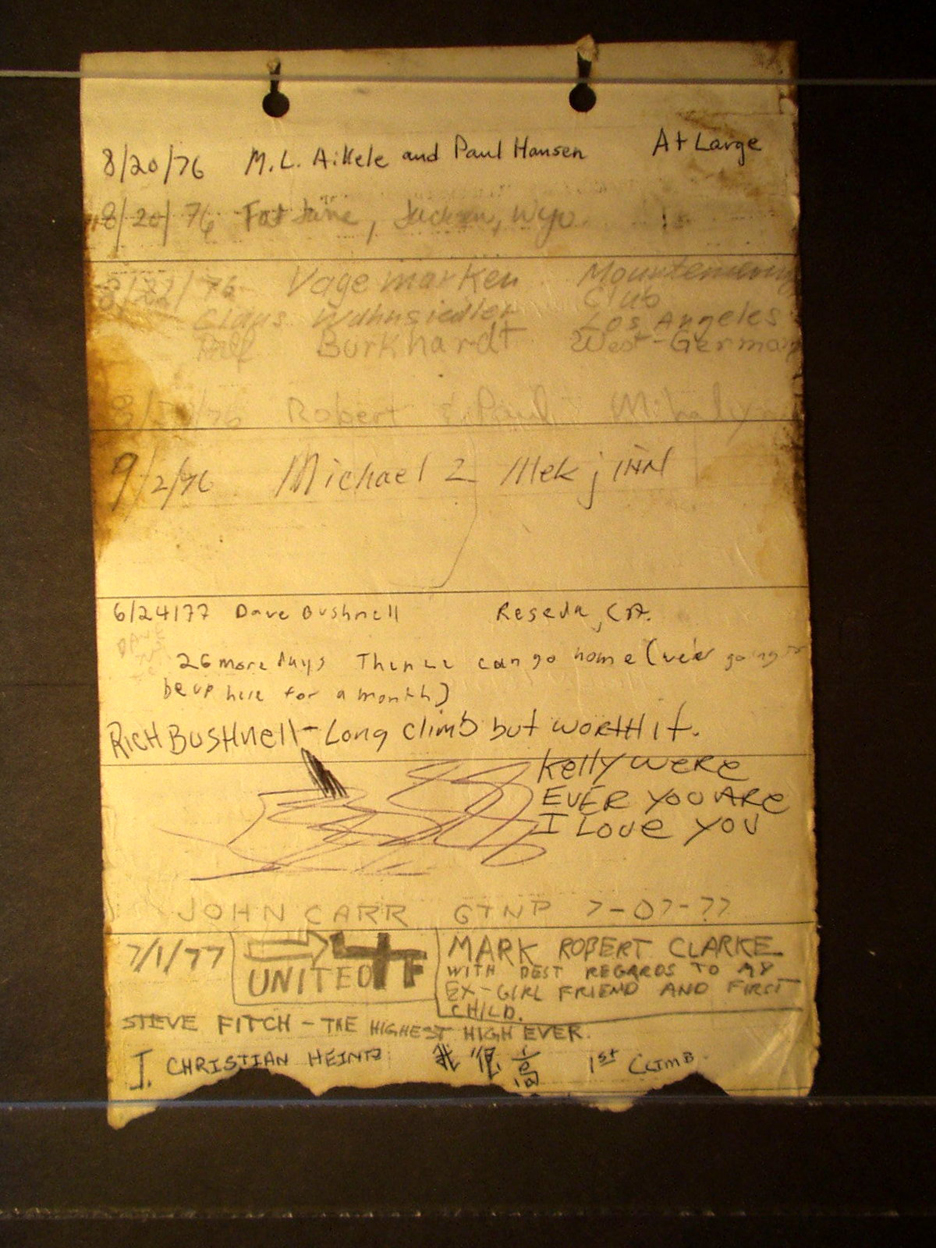 8/20/76 M.L. Aikele and Paul Hansen At Large
8/20/76 Fat Jane, Jackson, Wyo.
76 Vagemarken Mountaineering
Club
Claus Wahnsiedler Los Angeles
Burkhardt West-German
/76 Robert & Paul Mihaly
9/2/76 Michael Z
6/24/77 Dave Bushnell Reseda, CA.
26 more days Then we can go home (we're going to
be up here for a month)
RICH BUSHNell - Long climb but worth it.
Kelly WERE
EVER YOU ARE
I LOVE YOU
JOHN CARR GTNP 7-07-77
7/1/77 UNITED MARK ROBERT CLARKE
WITH BEST REGARDS TO MY
EX-GIRL FRIEND AND FIRST
CHILD.
STEVE FITCH - THE HIGHEST HIGH EVER.
J. CHRISTIAN 我很高 1st CLIMB